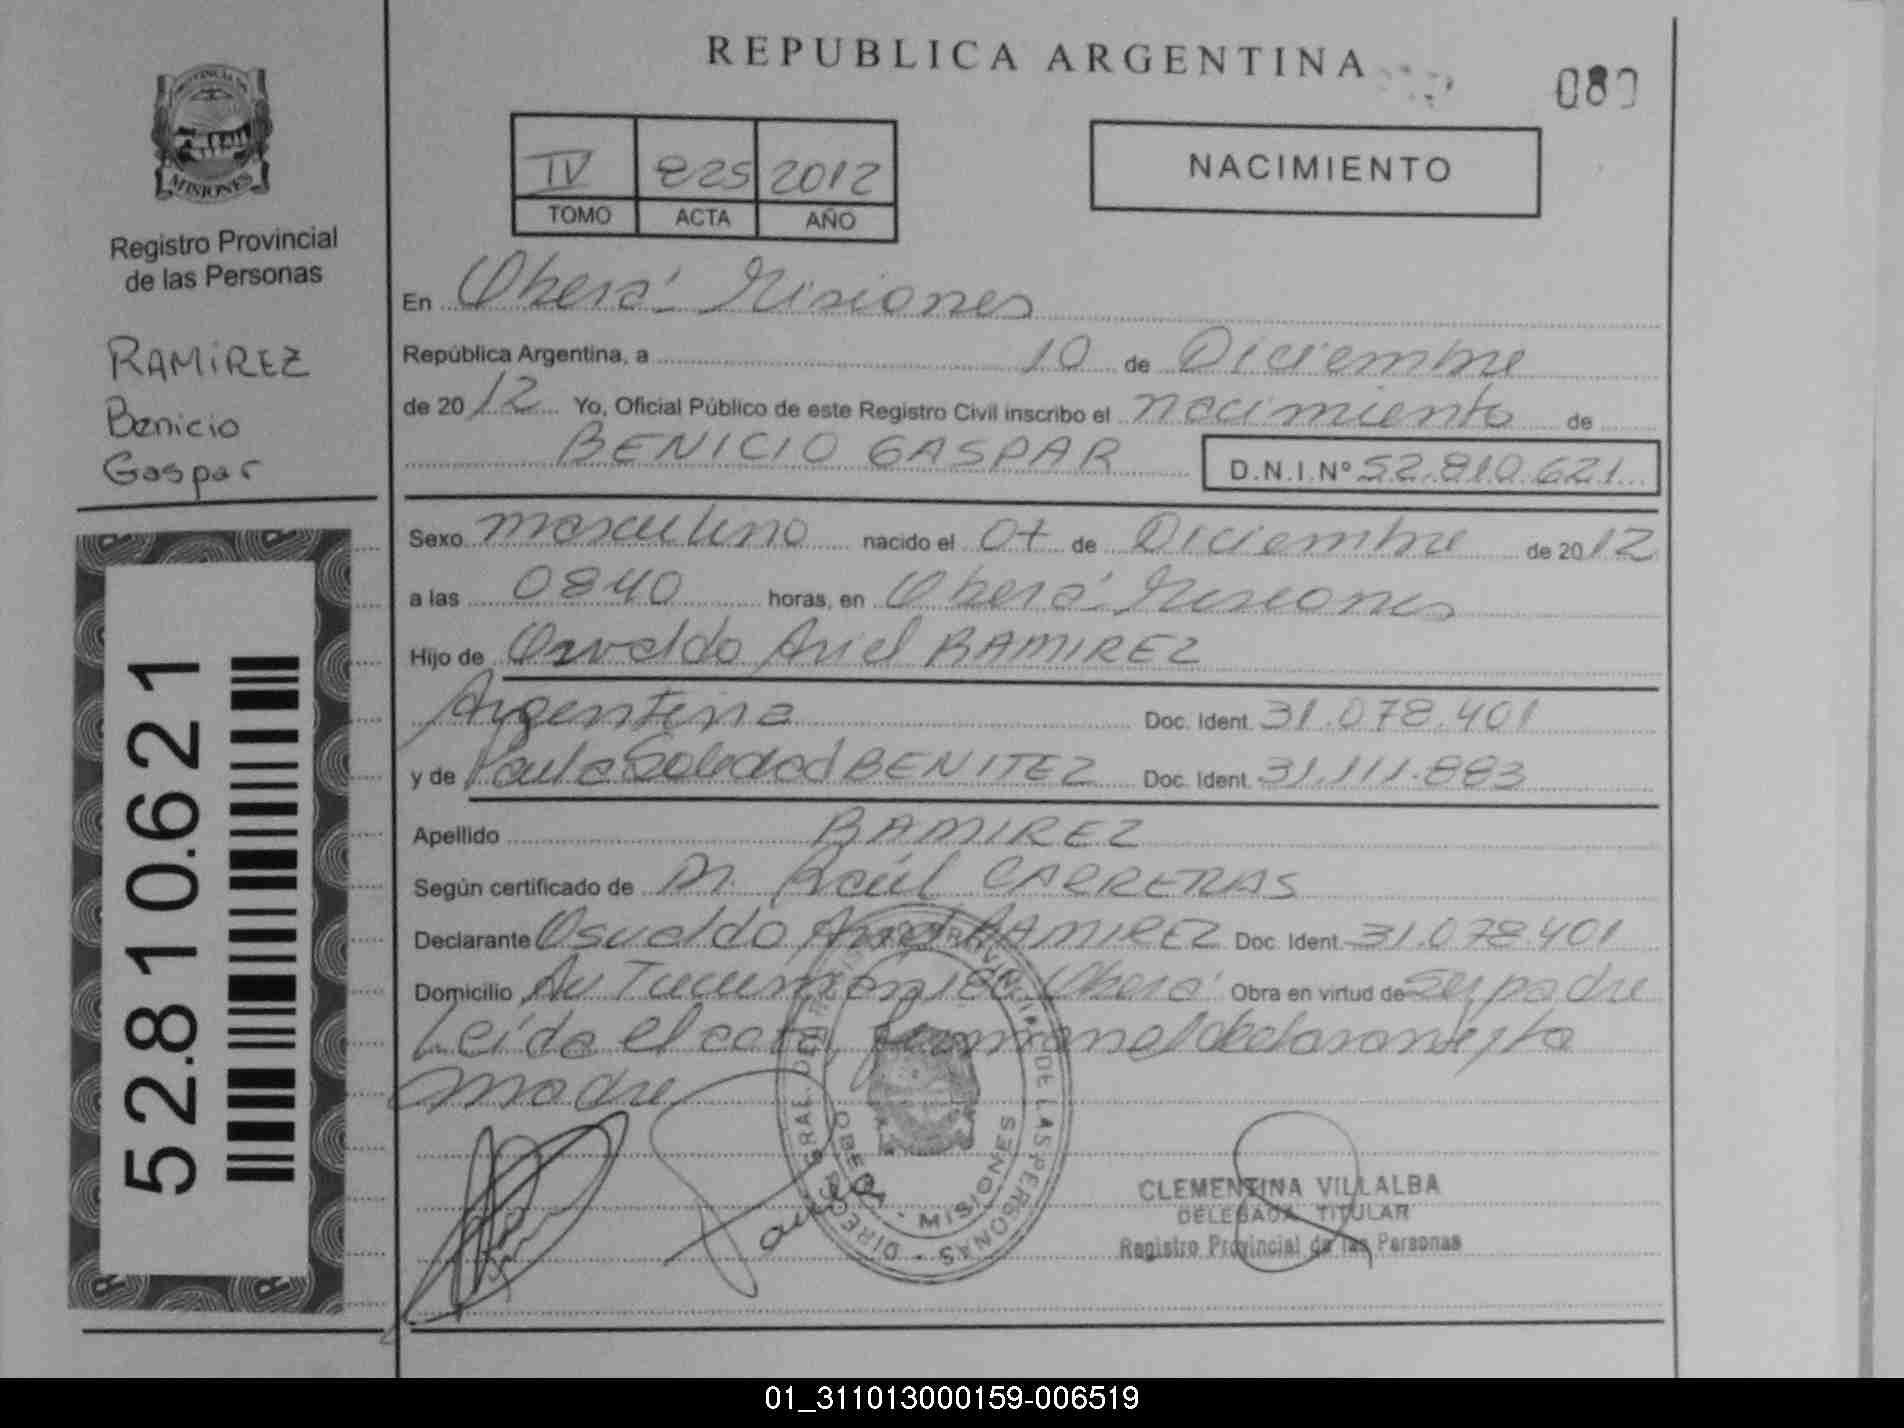 REPUBLICA ARGENTINA
PROVINCIA DE
MISIONES
Registro Provincial
de las Personas
RAMIREZ
Benicio
Gaspar
52.810.621
IV 825 2012
TOMO ACTA AÑO
NACIMIENTO
En Oberá Misiones
República Argentina, a 10 de Diciembre
de 2012 Yo, Oficial Público de este Registro Civil inscribo el nacimiento de
BENICIO GASPAR D.N.I.Nº 52.810.621
Sexo masculino nacido el 07 de Diciembre de 2012
a las 0840 horas, en Oberá Misiones
Hijo de Osvaldo Ariel RAMIREZ
Argentina Doc. Ident. 31.078.401
y de Paula Soledad BENITEZ Doc. Ident. 31.111.883
Apellido RAMIREZ
Según certificado de Dr. Raúl CARRERAS
Declarante Osvaldo Ariel RAMIREZ Doc. Ident. 31.078.401
Domicilio Av Tucumán Oberá Obra en virtud de ser padre
Leída el acta, firman el declarante y la
madre
DIRECC. GRAL. DEL REGISTRO PROVINCIAL DE LAS PERSONAS
OBERA - MISIONES
CLEMENTINA VILLALBA
DELEGADA TITULAR
Registro Provincial de las Personas
01_311013000159-006519